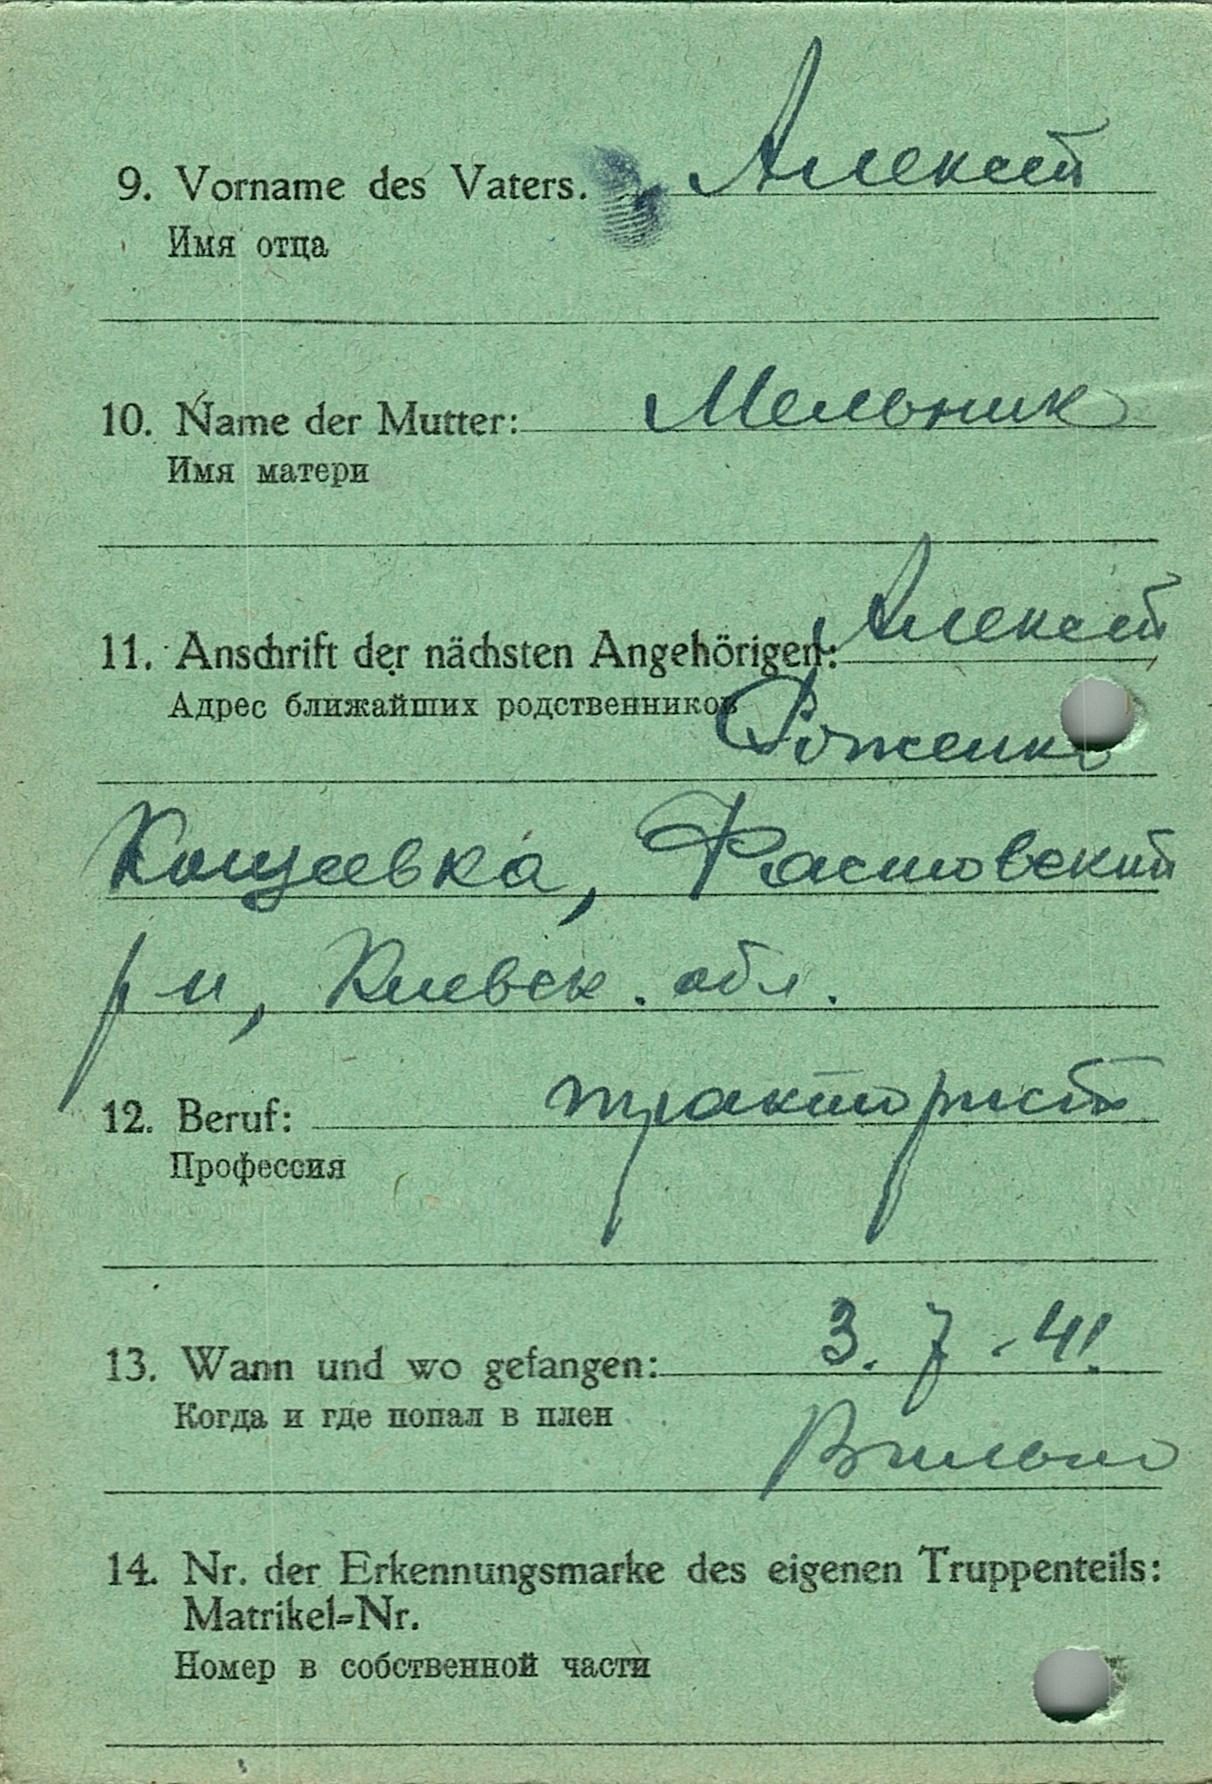 9. Vorname des Vaters. Алексей
Имя отца
10. Name der Mutter: Мельник
Имя матери
11. Anschrift der nächsten Angehörigen: Алексей
Адрес ближайших родственников Роженко
Кощеевка, Фастовский
р-н, Киевск. обл.
12. Beruf: тракторист
Профессия
13. Wann und wo gefangen: 3. 7. 41.
Когда и где попал в плен Вильно
14. Nr. der Erkennungsmarke des eigenen Truppenteils:
Matrikel=Nr.
Номер в собственной части